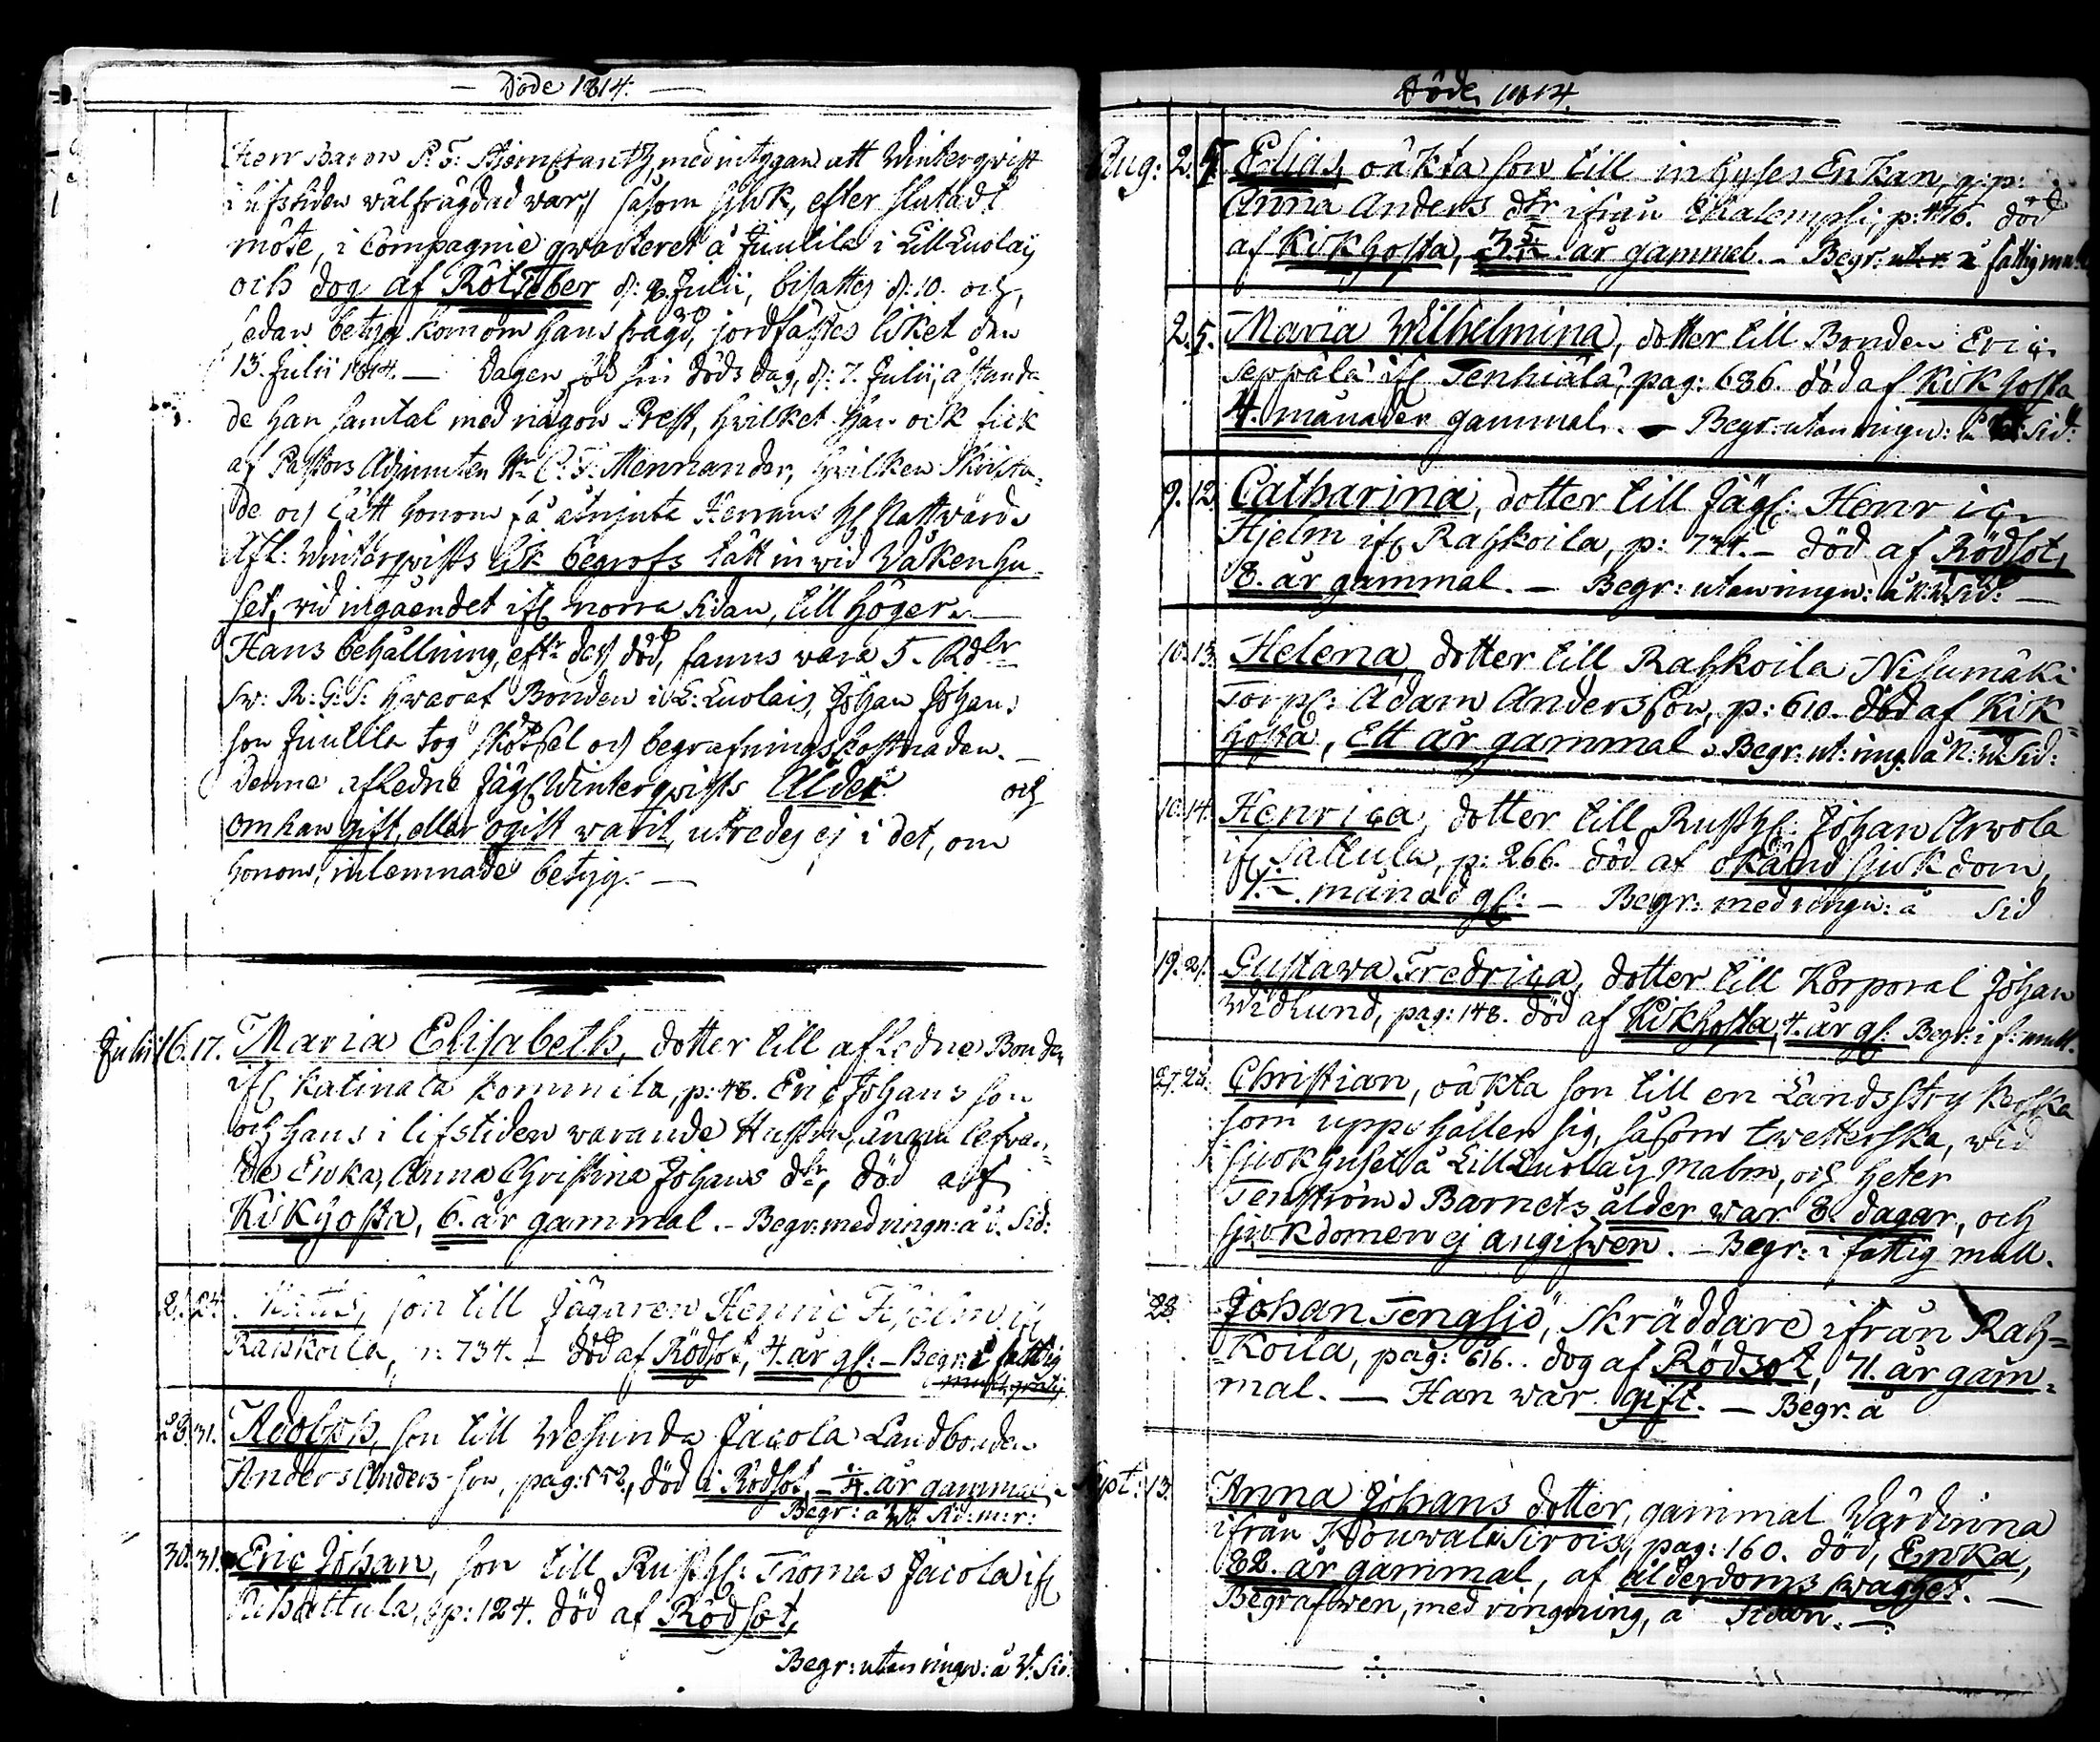 — Döde 1814. —
Herr Baron R. F. Stjerncrantz, med intygan att Winterqvist
i lifstiden wälfrägdad war, såsom sjuk, efter slutadt
möte, i Compagnie qwarteret å Juulila i Lill Luolais
och dog af Rötfeber d: 8. Julii, bisattes d: 10. och,
sedan betyg kom om hans frägd, jordfästes liket den
13. Julii 1814. — Dagen för sin döds dag, d: 7. Julii, åstunda-
de han samtal med någon Prest, hvilket han ock fick
af Pastors Adjuncten Hr C. F. Mennander, hvilken skrifta-
de och lätt honom få åtnjuta Herrans H. Nattward.
Afl: Winterqvists lik begrofs tätt in wid Wåkenhu-
set, wid ingåendet ifr. norra sidan, till höger.
Hans behållning, eftr dess död, fanns wara 5. Rdlr
Sw: R: G: S: hwaraf Bonden i L: Luolais, Johan Johans
son Juulila tog skötsel och begrafnings kostnaden. —
Denne aflidne Jäg. Winterqvists Ålder och
om han gift, eller ogift warit, utredes ej i det, om
honom, inlemnade betyg. —
Julii 16. 17. Maria Elisabeth, dotter till aflidne Bonden
ifr. Katinala Kommila, p: 48. Eric Johans son
och hans i lifstiden warande Hustru, ännu lefwan-
de Enka, Anna Christina Johans dtr, död af
Kikhosta, 6. år gammal. — Begr: med ringn: å ö. Sid:
21. 24. Matts, son till Jägaren Henric Hjelm ifr.
Rahkoila, p: 734. — död af Rödsot, 4. år gl: — Begr: i fattig
mull, gratis
28. 31. Adolph, son till Wesunda Jacola Landbonden
Anders Anders son, pag: 552, död i Rödsot, — ¼ år gammal.
Begr: å W. Sid: m: r:
30. 31. Eric Johan, son till Rusth: Thomas Jacola ifr.
Rihattula, p: 124. död af Rödsot,
Begr: utan ringn: å W. Sid.
Döde 1814.
Aug: 2. 4. Elias, oäkta son till inhyses Enkan, q: p:
Anna Anders dtr ifrån Ekalempsi, p: 476. död
af Kikhosta, 3 år gammal. — Begr: å fattig mull
2. 5. Maria Wilhelmina, dotter till Bonden Eric
Seppälä ifr. Tenhiälä, pag: 636. död af Kikhosta
4. månader gammal. — Begr: utan ringn: å Sid:
9. 12. Catharina, dotter till Jäg: Henric
Hjelm ifr. Rahkoila, p: 734. — död af Rödsot,
8. år gammal. — Begr: utan ringn: å n: w. Sid: —
10. 13. Helena, dotter till Rahkoila Nisumäki
Torp: Adam Anders son, p: 610. död af Kik-
hosta, Ett år gammal. Begr: ut: ring. å N: w. Sid:
10. 14. Henrica, dotter till Rusth: Johan Arwola
ifr. Sattula, p: 266. död af okänd sjukdom,
1. månad gl: — Begr: med ringn: å Sid
19. 21. Gustawa Fredrica, dotter till Korporal Johan
Widlund, pag: 148. död af Kikhosta, 4. år gl: Begr: i f: mull.
27. 28. Christian, oäkta son till en Landsstrykerska
som uppehåller sig, såsom twetterska, wid
sjukhuset å Lill Luolais malm, och heter
Tengström. Barnets ålder war 8. dagar, och
sjukdomen ej angifwen. — Begr: i fattig mull.
28. Johan Tengsjö, Skräddare ifrån Rah-
koila, pag: 616. dog af Rödsot, 71. år gam-
mal. — Han war gift. — Begr: å
Sept: 13. Anna Johans dotter, gammal Wärdinna
ifrån Houwala Sirois, pag: 160. död, Enka,
82. år gammal, af ålderdoms swaghet. —
Begrafwen, med ringning, å Sidan. —